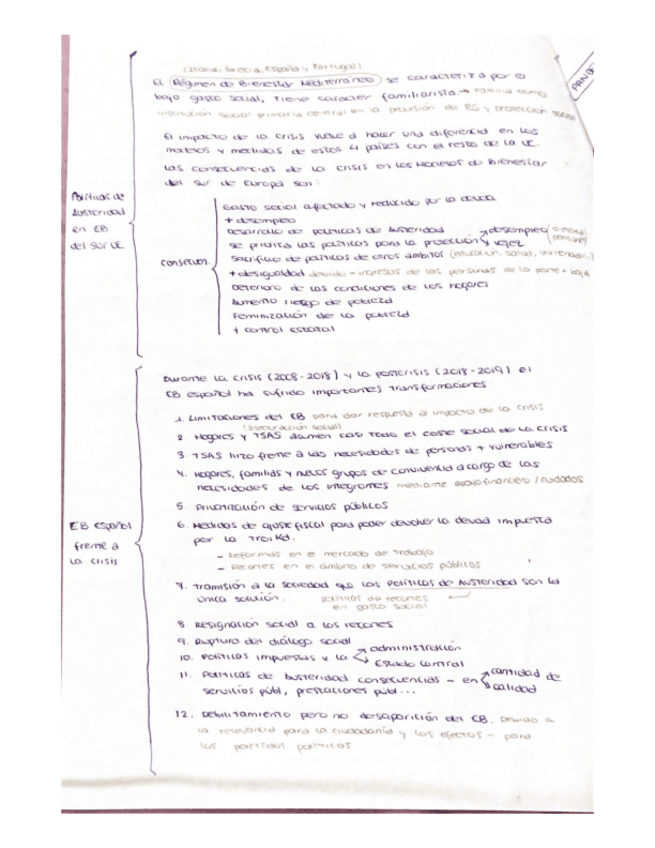 (Italia, Grecia, España y Portugal)
El Régimen de Bienestar Mediterráneo se caracteriza por el
bajo gasto social, tiene carácter familiarista → familia como
institución social primaria central en la provisión de BS y protección social
El impacto de la crisis vuelve a hacer una diferencia en los
modelos y medidas de estos 4 países con el resto de la UE.
Las consecuencias de la crisis en los Modelos de Bienestar
del sur de Europa son:
Políticas de
Austeridad
en EB
del sur UE
Consecuen.
Gasto social afectado y reducido por la deuda
+ desempleo
Desarrollo de políticas de Austeridad
Se prioriza las políticas para la protección desempleo y vejez (sistema pensiones)
Sacrificio de políticas de otros ámbitos (educación, salud, vivienda...)
+ desigualdad debido - ingresos de las personas de la parte + baja
Deterioro de las condiciones de los hogares
Aumento riesgo de pobreza
Feminización de la pobreza
+ control estatal
EB español
frente a
la crisis
Durante la crisis (2008-2018) y la postcrisis (2018-2019) el
EB español ha sufrido importantes transformaciones
1. Limitaciones del EB para dar respuesta al impacto de la crisis
2. Hogares y TSAS asumen casi todo el coste social de la crisis
3. TSAS hizo frente a las necesidades de personas + vulnerables
4. Hogares, familias y nuevos grupos de convivencia a cargo de las
necesidades de los integrantes mediante apoyo financiero / cuidados
5. Privatización de servicios públicos
6. Medidas de ajuste fiscal para poder devolver la deuda impuesta
por la Troika.
- Reformas en el mercado de trabajo
- Recortes en el ámbito de servicios públicos
7. Tramisión a la sociedad que las Políticas de Austeridad son la
única solución. políticas de recortes
en gasto social
8. Resignación social a los recortes
9. Ruptura del diálogo social
10. Políticas impuestas x la administración
Estado central
11. Políticas de Austeridad consecuencias - en cantidad de
calidad
servicios públ, prestaciones públ...
12. Debilitamiento pero no desaparición del EB. Debido a
la relevancia para la ciudadanía y los efectos - para
los partidos políticos